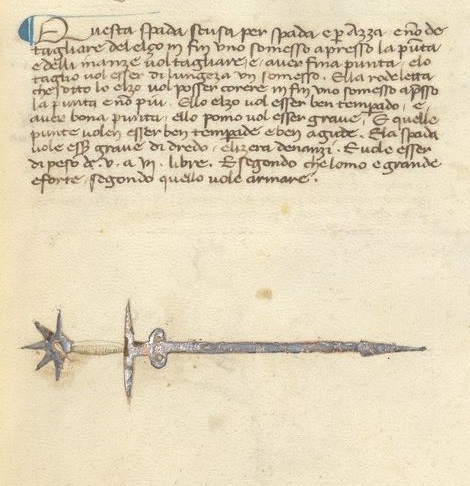 Questa spada sè usa per spada e per Azza. e nō de
tagliare del elzo in fin uno somesso apresso la pūta
e delli inanze vol tagliare, e aver fina punta, elo
taglio vol esser di lungeza un somesso. Ella rodeletta
che sotto lo elzo vol posser corere in fin uno somesso apsso
la punta e nō piu. Ello elzo vol esser ben tempado, e,
aver bona punta, ello pomo vol esser grave, E quelle
punte volen esser ben tempade e ben agude. E la spada
vole esse grave di dredo, e lizera denanzi. E vole esser
di peso de .v. a vii. libre. E segondo che lomo e grande
e forte, segondo quello vole armare.